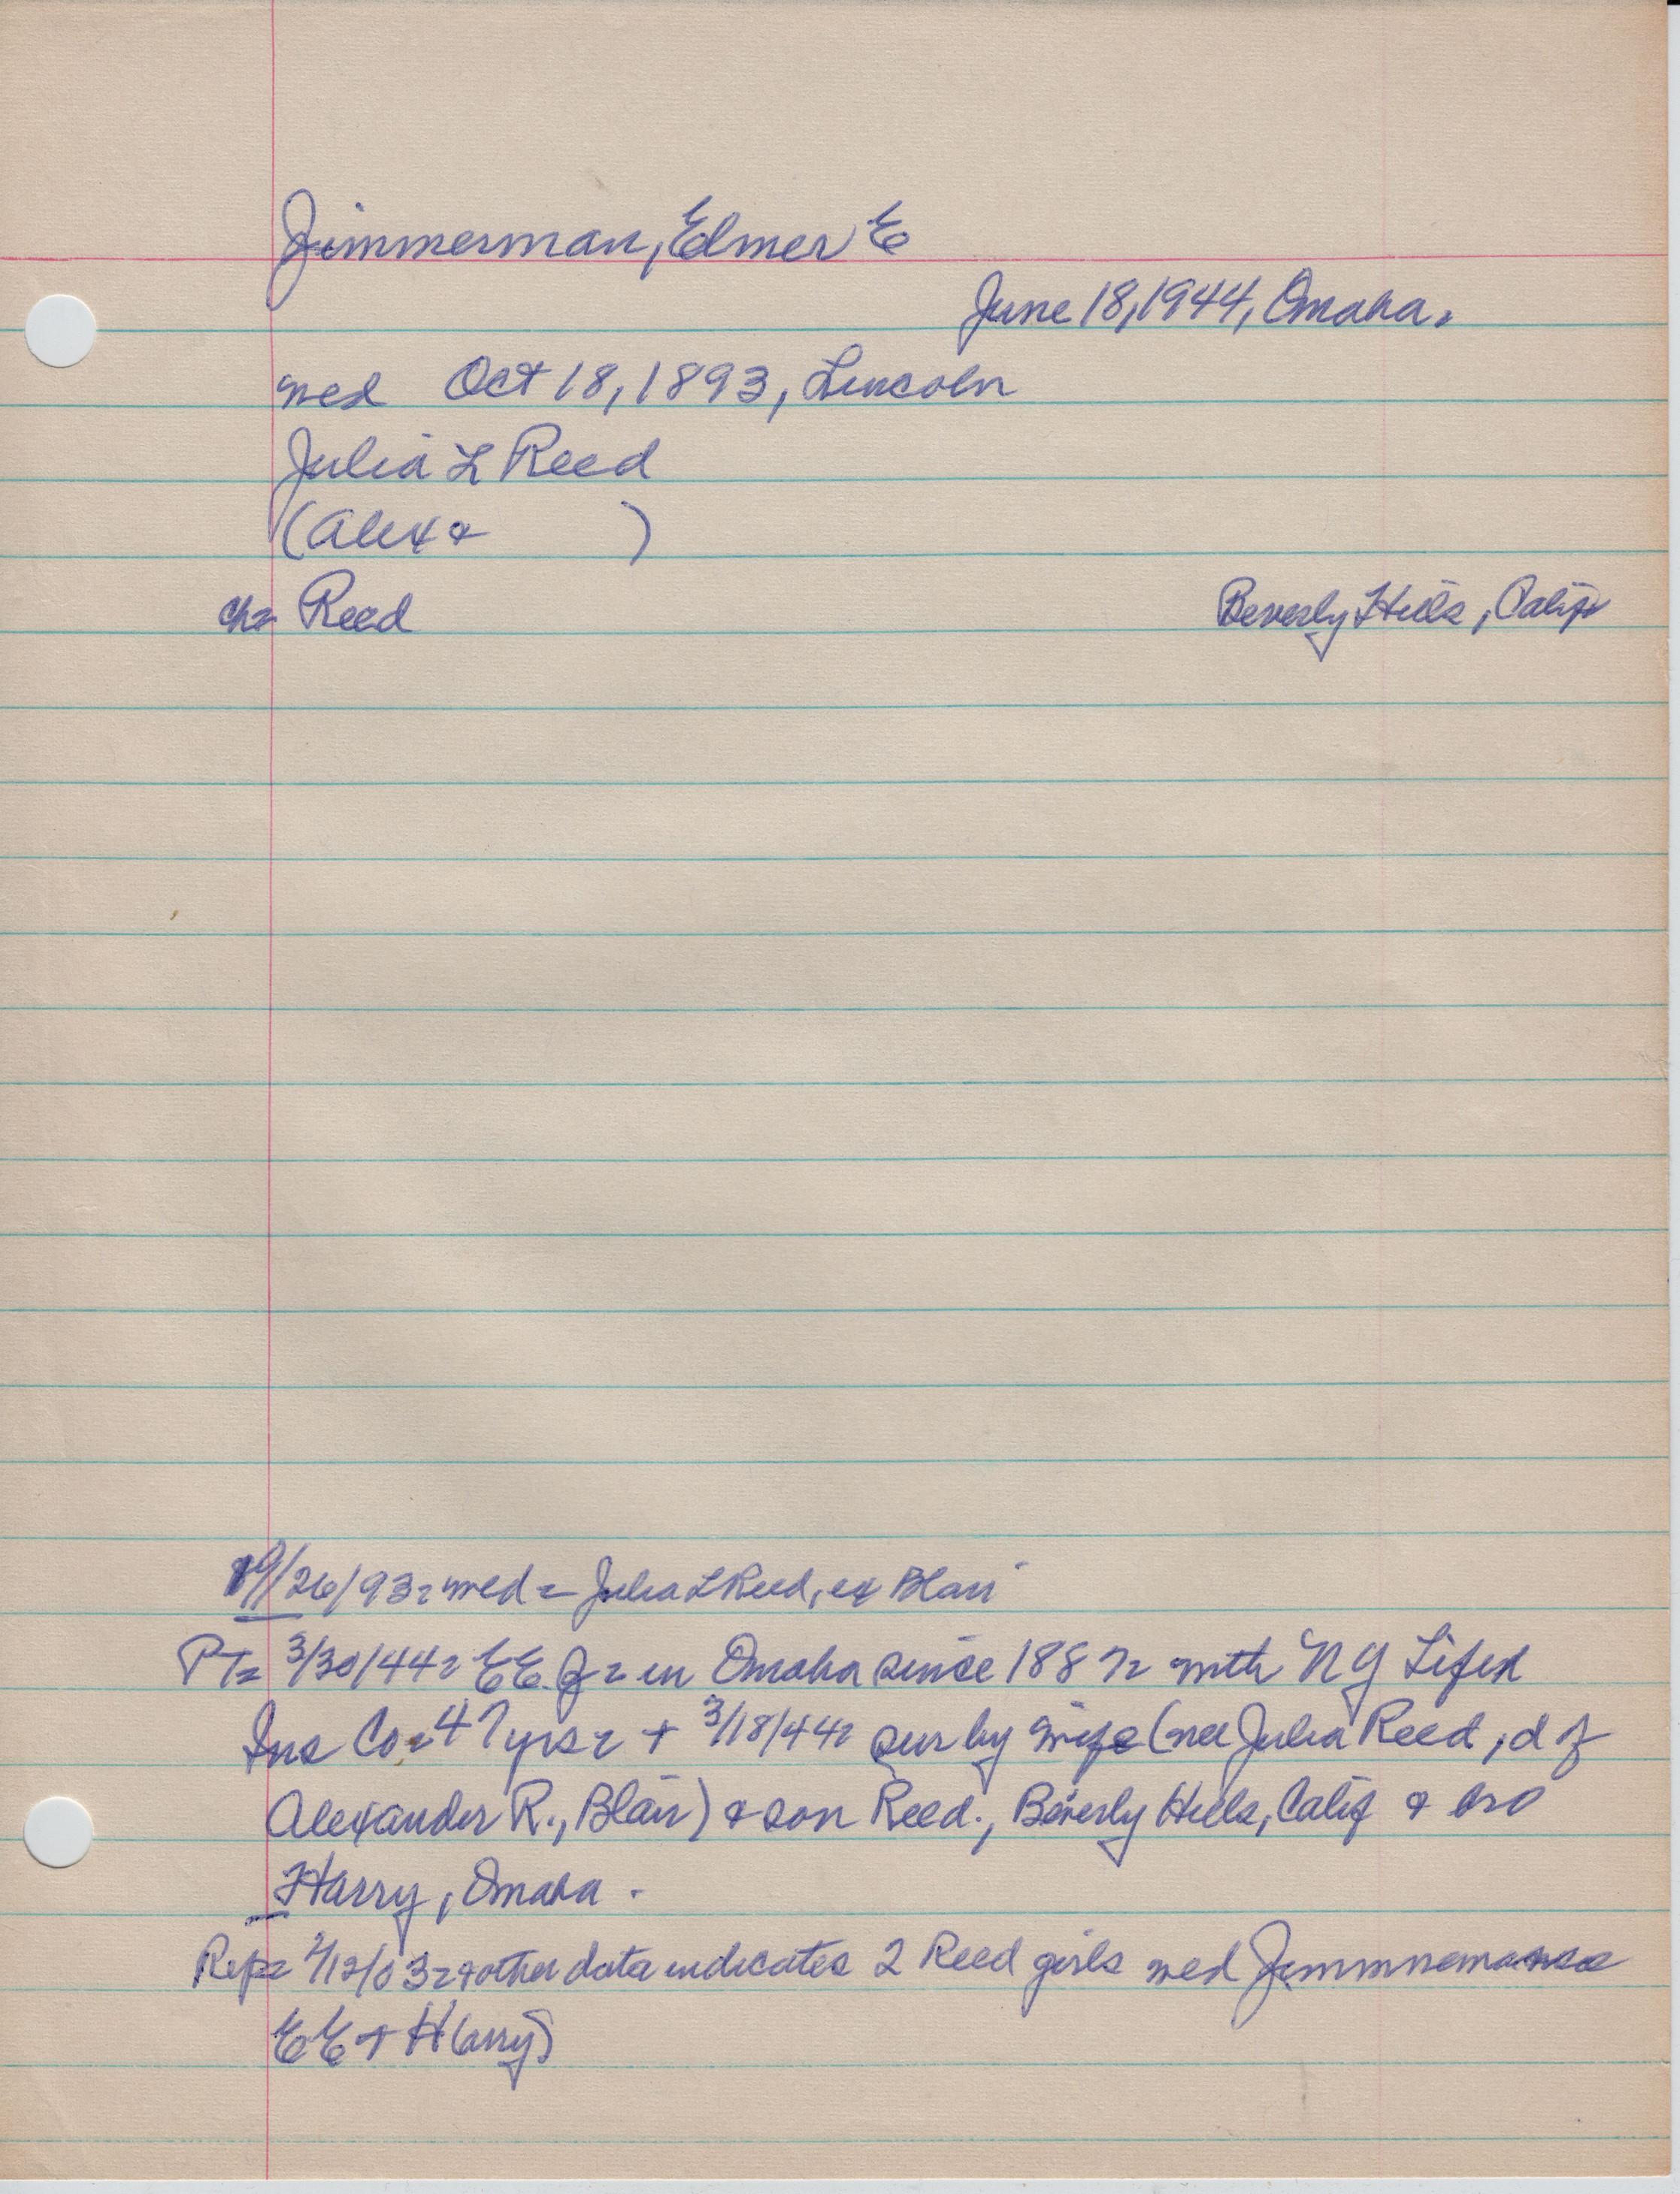 Zimmerman, Elmer E
June 18, 1944, Omaha.
wed Oct 18, 1893, Lincoln
Julia L Reed
(Alex &          )
ch= Reed          Beverly Hills, Calif
9/26/93= wed = Julia L Reed, ex Blair
PT= 3/30/44= EE Z = in Omaha since 1887= with NY Life
Ins Co= 47 yrs = + 3/18/44= sur by wife (nee Julia Reed, d of
Alexander R., Blair) & son Reed., Beverly Hills, Calif & bro
Harry, Omaha.
Rep= /12/03= & other data indicates 2 Reed girls wed
EE + H(arry)